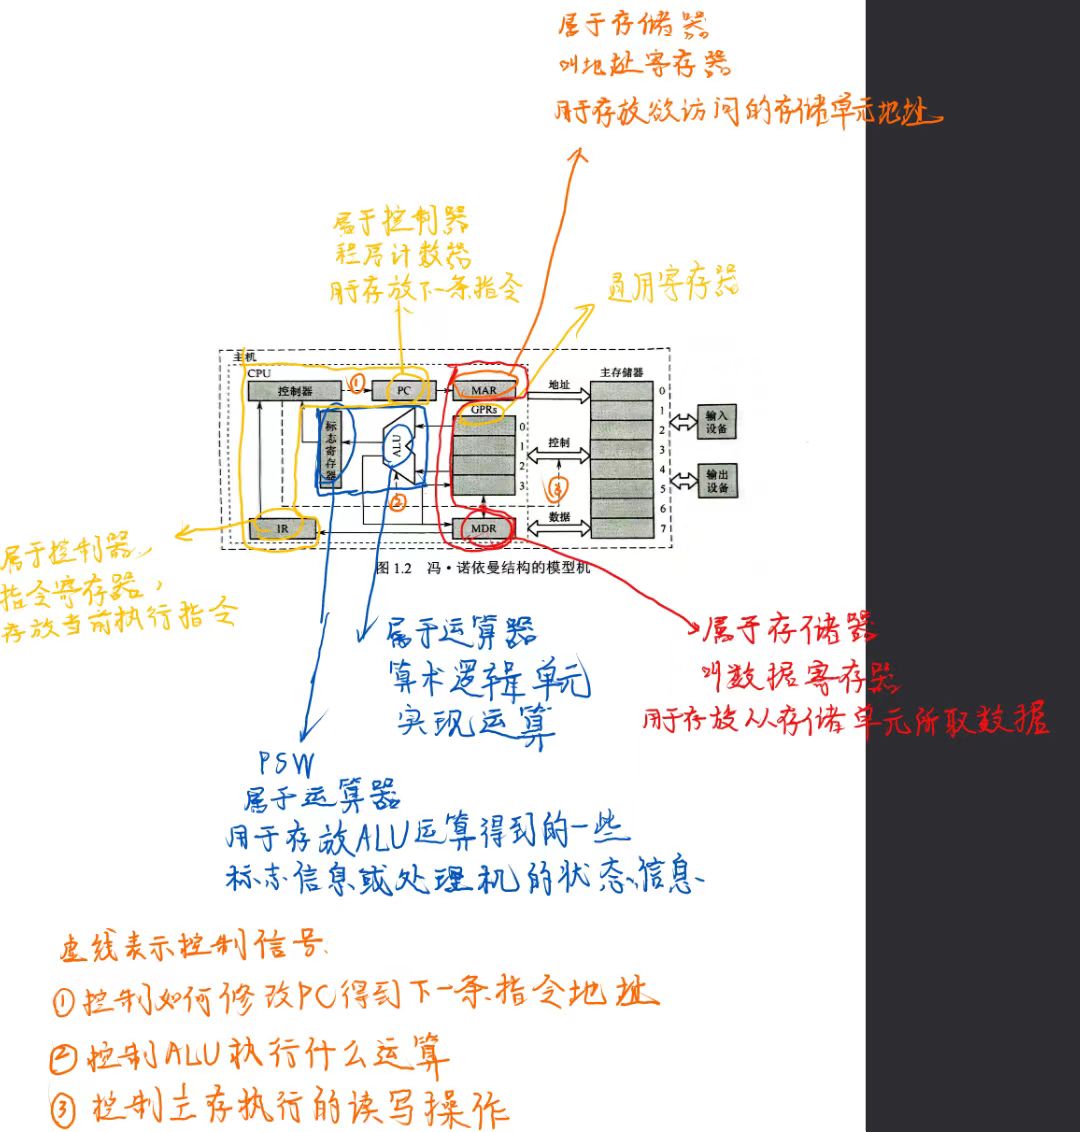 属于存储器
叫地址寄存器
用于存放欲访问的存储单元地址
属于控制器
程序计数器
用于存放下一条指令
通用寄存器
主机
CPU
控制器
①
PC
MAR
地址
主存储器
GPRs
标志寄存器
ALU
0
1
2
3
②
控制
③
0
1
2
3
4
5
6
7
输入设备
输出设备
IR
MDR
数据
图 1.2 冯·诺依曼结构的模型机
属于控制器,
指令寄存器,
存放当前执行指令
属于运算器
算术逻辑单元
实现运算
属于存储器
叫数据寄存器
用于存放从存储单元所取数据
PSW
属于运算器
用于存放ALU运算得到的一些
标志信息或处理机的状态信息
虚线表示控制信号.
①控制如何修改PC得到下一条指令地址
②控制ALU执行什么运算
③控制主存执行的读写操作